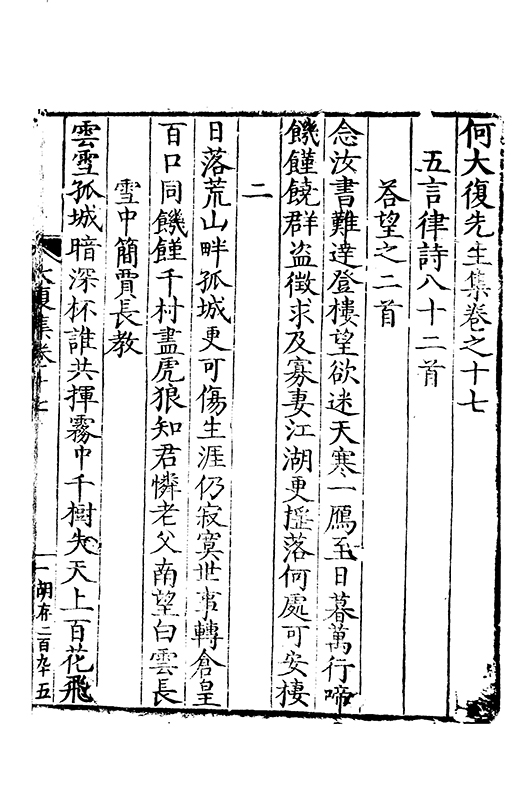 何大復先生集卷之十七
五言律詩八十二首
答望之二首
念汝書難達登樓望欲迷天寒一鴈至日暮萬行啼
饑饉饒群盗徵求及寡妻江湖更揺落何處可安棲
二
日落荒山畔孤城更可傷生涯仍寂寞世事轉倉皇
百口同饑饉千村盡虎狼知君憐老父南望白雲長
雪中簡賈長教
雲雪孤城暗深杯誰共揮霧中千樹失天上百花飛
大復集卷十七
一